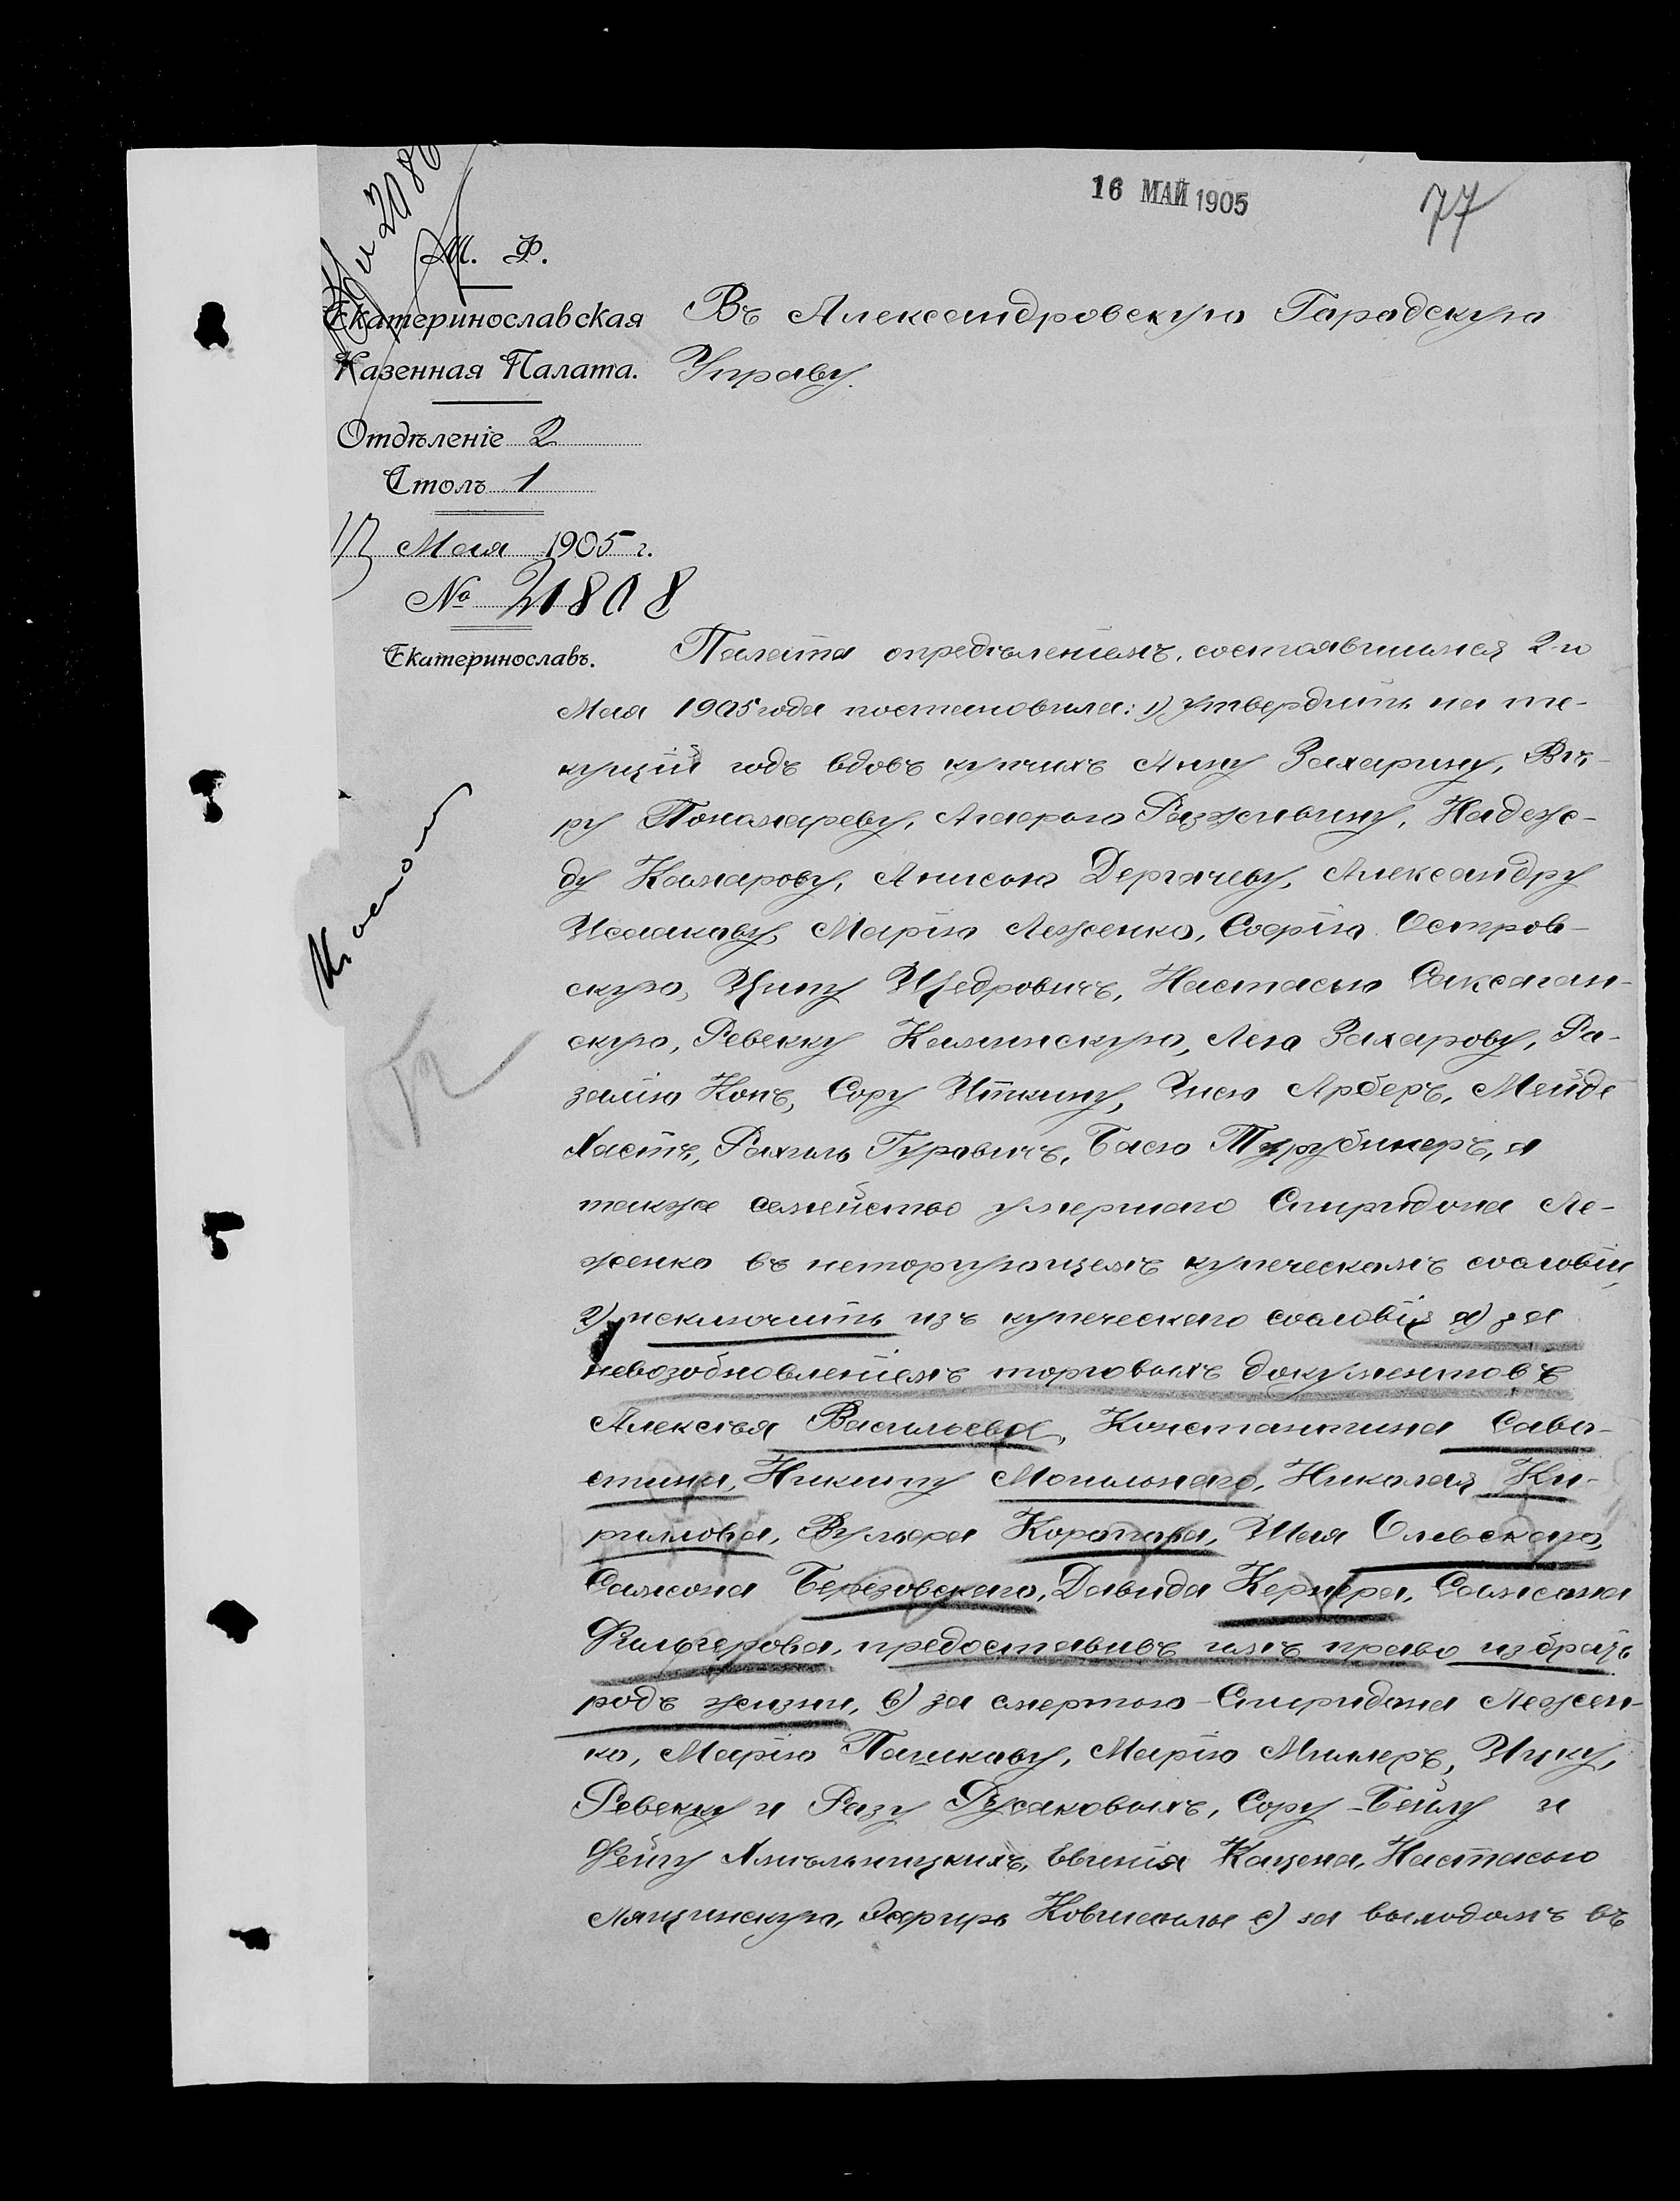 16 МАЙ 1905
77
М. Ф.
Екатеринославская
Казенная Палата.
Отдѣленіе 2
Столъ 1
13 Мая 1905 г.
№ 21808
Екатеринославъ.
Въ Александровскую Городскую
Управу.
Палата опредѣленіемъ, состоявшимся 2-го
Мая 1905 года постановила: 1) утвердить на те-
кущій годъ вдовъ купчихъ Анну Захарину, Вѣ-
ру Пономареву, Марью Разживину, Надеж-
ду Комарову, Анисью Дергачеву, Александру
Исакову, Марію Леженко, Софію Остров-
скую, Ципу Щедровичъ, Настасью Саксаган-
скую, Ревекку Каминскую, Лею Захарову, Ро-
залію Конъ, Сору Иткину, Эисю Арберъ, Мейде
Хастъ, Рахиль Гуровичъ, Басю Трубинеръ, а
также семейство умершаго Спиридона Ле-
женко въ неторгующемъ купеческомъ сословіи,
2) исключить изъ купеческаго сословія а) за
невозобновленіемъ торговыхъ документовъ
Алексѣя Васильева, Константина Сава-
стина, Никиту Могильнаго, Николая Ки-
рилова, Вульфа Коропова, Шая Ольвскаго,
Самсона Березовскаго, Давида Кернера, Самсона
Фильгерова, предоставивъ имъ право избрать
родъ жизни, в) за смертью Спиридона Лежен-
ко, Марію Пашкову, Марію Миллеръ, Цирку,
Ревекку и Розу Русаковыхъ, Сору-Бейлу и
Фейгу Хмѣльницкихъ, Евгенія Кацена, Настасью
Лящинскую, Эсфирь с) за выходомъ въ